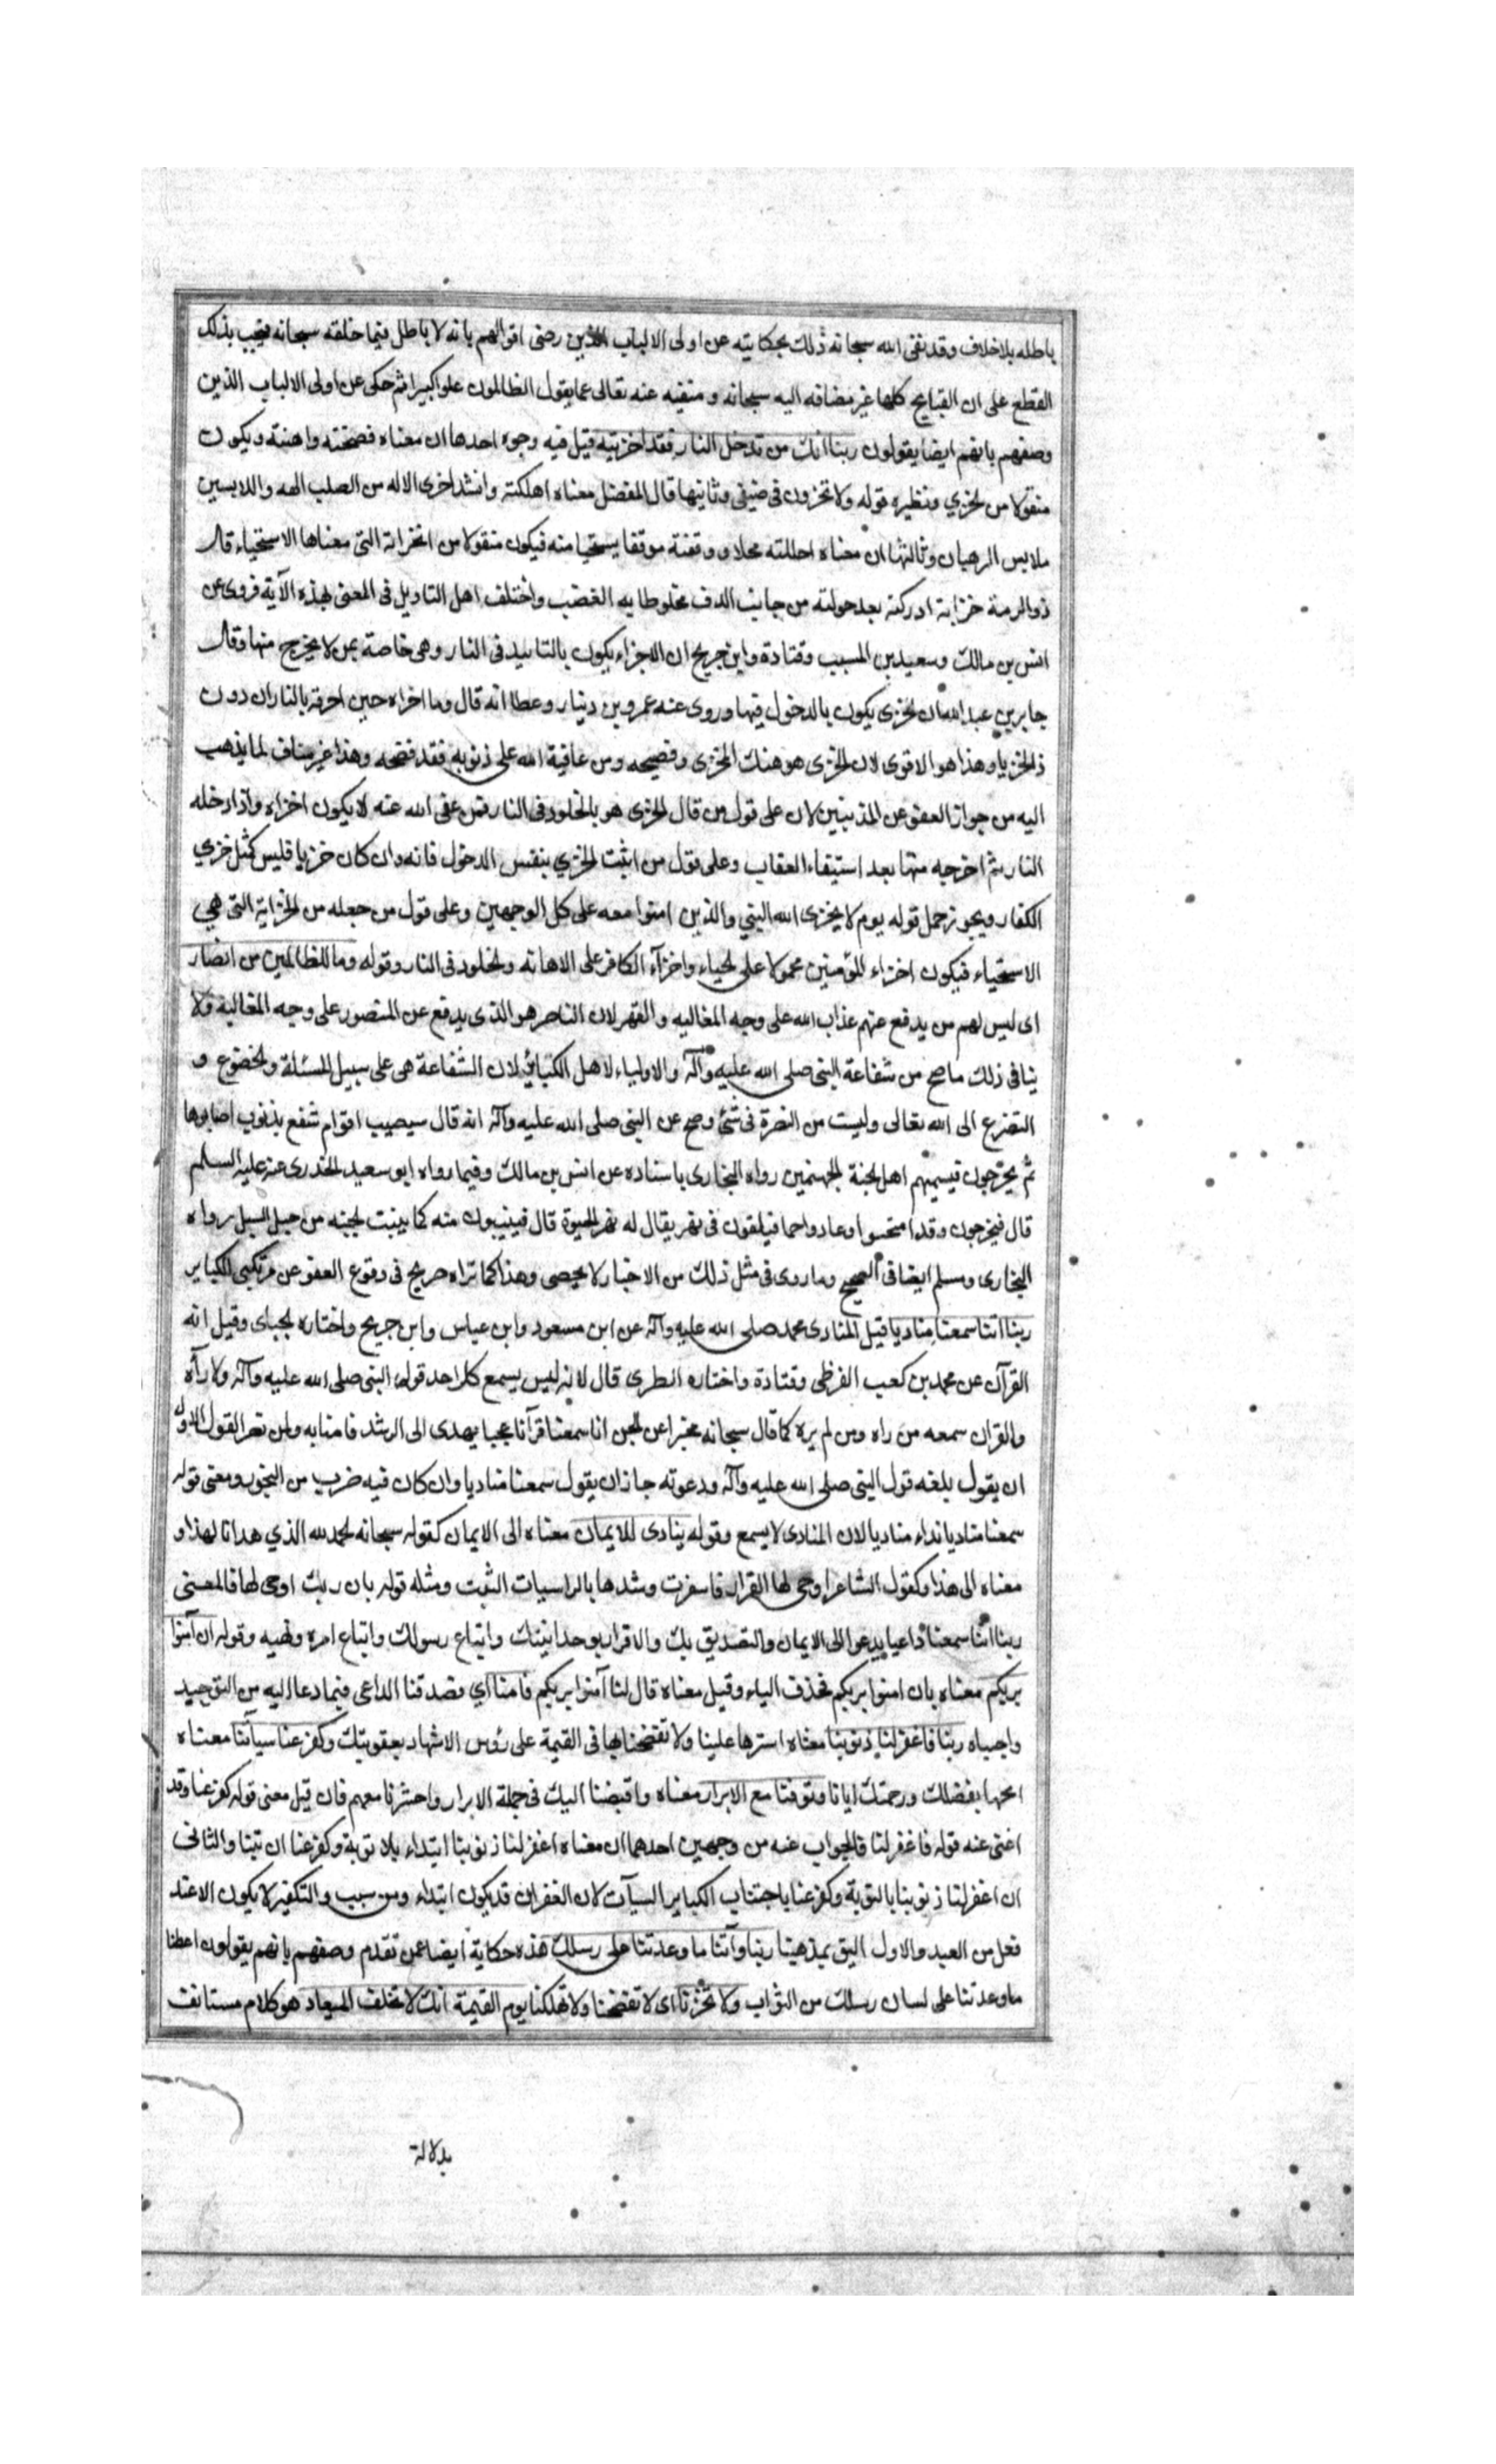 باطله بلاخلاف وقد نفى الله سبحانه ذلك بحكايته عن اولى الالباب الذين رضى اقوالهم بانه لا باطل فيما خلقه سبحانه فيجب بذلك
القطع على ان القبايح كلها غير مضافه اليه سبحانه و منفيه عنه تعالى عما يقول الظالمون علوا كبيرا ثم حكى عن اولى الالباب الذين
وصفهم بانهم ايضا يقولون ربنا انك من تدخل النار فقد اخزيته قيل فيه وجوه احدها ان معناه فضحته واهنته ويكون
منقولا من لخزي ونظيره قوله ولا تخزون فى ضيفى وثانيها قال المفضل معناه اهلكته وانشد اخزى الاله من الصليب الهه واللابسين
ملابس الرهبان وثالثها ان معناه احللته محلا و وقفته موقفا يستحيا منه فيكون منقولا من الخزاية التى معناها الاستحياء قال
ذو الرمة خزاية ادركته بعد جولته من جانب الدف مخلوطا به الغضب واختلف اهل التاويل فى المعنى بهذه الآية فروى عن
انس بن مالك وسعيد بن المسيب وقتادة وابن جريح ان الاخزاء يكون بالتابيد فى النار وهى خاصة بمن لا يخرج منها وقال
جابر بن عبد الله ان لخزى يكون بالدخول فيها وروى عنه عمرو بن دينار وعطا انه قال وما اخزاه حين احرقه بالنار ان دون
ذا لخزيا وهذا هو الاقوى لان لخزى هو هتك المخزى وفضيحه ومن عاقبة الله على ذنوبه فقد فضحه وهذا غير مناف لما يذهب
اليه من جواز العفو عن المذنبين لان على قول من قال لخزى هو بالخلود فى النار فمن عفى الله عنه لا يكون اخزاه واذا ادخله
النار ثم اخرجه منها بعد استيفاء العقاب وعلى قول من اثبت لخزي بنفس الدخول فانه وان كان خزيا فليس كمثل خزي
الكفار ويجوز حمل قوله يوم لا يخزى الله النبي والذين امنوا معه على كل الوجهين وعلى قول من جعله من لخزاية التى هي
الاستحياء فيكون اخزاء للمؤمنين محمولا على لحياء واخزآء الكافر على الاهانه ولخلود فى النار وقوله وما للظالمين من انصار
اى ليس لهم من يدفع عنهم عذاب الله على وجه المغالبه والقهر لان الناصر هو الذى يدفع عن المنصور على وجه المغالبة ولا
ينافى ذلك ما صح من شفاعة النبى صلى الله عليه وآله والاولياء لاهل الكبائر لان الشفاعة هى على سبيل المسئلة ولخضوع و
التضرع الى الله تعالى وليست من النصرة فى شئ وصح عن النبى صلى الله عليه وآله انه قال سيصيب اقوام شفع بذنوب اصابوها
ثم يخرجون فيسميهم اهل لجنة لجهنميين رواه البخارى باسناده عن انس بن مالك وفيما رواه ابو سعيد لخدرى عنه عليه السلم
قال فيخرجون وقد امتحسوا وعادوا حما فيلقون فى نهر يقال له نهر لحيوة قال فينبتون منه كما ينبت لحبه من حيل السيل رواه
البخارى ومسلم ايضا فى الصحيح وما روى فى مثل ذلك من الاخبار لا يحصى وهذا كما تراه صريح فى وقوع العفو عن مرتكبى الكباير
ربنا اننا سمعنا مناديا قيل المنادى محمد صلى الله عليه وآله عن ابن مسعود وابن عباس وابن جريح واختاره لجباى وقيل انه
القرآن عن محمد بن كعب القرظى وقتادة واختاره الطرى قال لانه ليس يسمع كل احد قوله النبى صلى الله عليه وآله ولا رآه
والقران سمعه من راه ومن لم يره كما قال سبحانه مخبرا عن لجن انا سمعنا قرآنا عجبا يهدى الى الرشد فامنا به ولمن نصر القول الاول
ان يقول بلغه قول النبى صلى الله عليه وآله ودعوته جاز ان يقول سمعنا مناديا وان كان فيه ضرب من التجوز ومعنى قوله
سمعنا مناديا نداء مناديا لان المنادى لا يسمع وقوله ينادى للايمان معناه الى الايمان كقوله سبحانه لحمد لله الذي هدانا لهذا و
معناه الى هذا وكقول الشاعر اوحى لها القرار فاسفرت وشدها بالراسيات الثبت ومثله قوله بان ربك اوحى لها فالمعنى
ربنا اننا سمعنا داعيا يدعوا الى الايمان والتصديق بك والاقرار بوحدانيتك واتباع رسولك واتباع امره ونهيه وقوله ان آمنوا
بربكم معناه بان امنوا بربكم فحذف الباء وقيل معناه قال لنا آمنوا بربكم فامنا اي فصدقنا الداعى فيما دعا اليه من التوحيد
واجبناه ربنا فاغفر لنا ذنوبنا معناه استرها علينا ولا تفضحنا بها فى القيمة على رؤس الاشهاد بعقوبتك وكفر عنا سيآتنا معناه
امحها بفضلك ورحمتك ايانا وتوفنا مع الابرار معناه واقبضنا اليك فى جملة الابرار واحشرنا معهم فان قيل معنى قوله كفر عنا وقد
اغنى عنه قوله فاغفر لنا فالجواب عنه من وجهين احدهما ان معناه اغفر لنا ذنوبنا ابتداء بلا توبة وكفر عنا ان تبنا والثانى
ان اغفر لنا ذنوبنا بالتوبة وكفر عنا باجتناب الكباير السيآت لان الغفران قد يكون ابتداء ومن سبب والتكفير لا يكون الا عند
فعل من العبد والاول اليق بمذهبنا ربنا وآتنا ما وعدتنا على رسلك هذه حكاية ايضا عمن تقدم وصفهم بانهم يقولون اعطنا
ما وعدتنا على لسان رسلك من الثواب ولا تخزنا اى لا تفضحنا ولا تهلكنا يوم القيمة انك لا تخلف الميعاد هو كلام مستانف
بدلالة